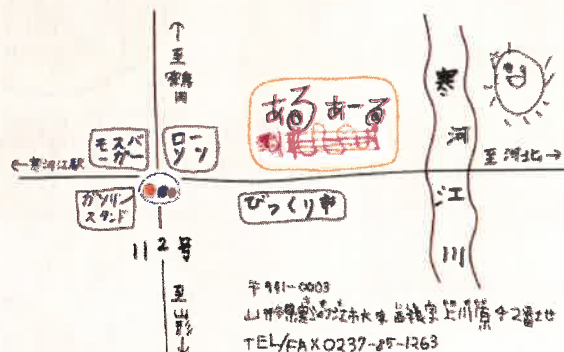 ↑
至
鶴
岡
モスバ
ーガー
ロー
ソン
あるあーる
←寒河江駅
至河北→
寒
河
江
川
ガソリン
スタンド
びっくり市
112号
至
山
形
↓
〒991-0003
山形県寒河江市大字西根字上川原42番地
TEL/FAX 0237-85-1263